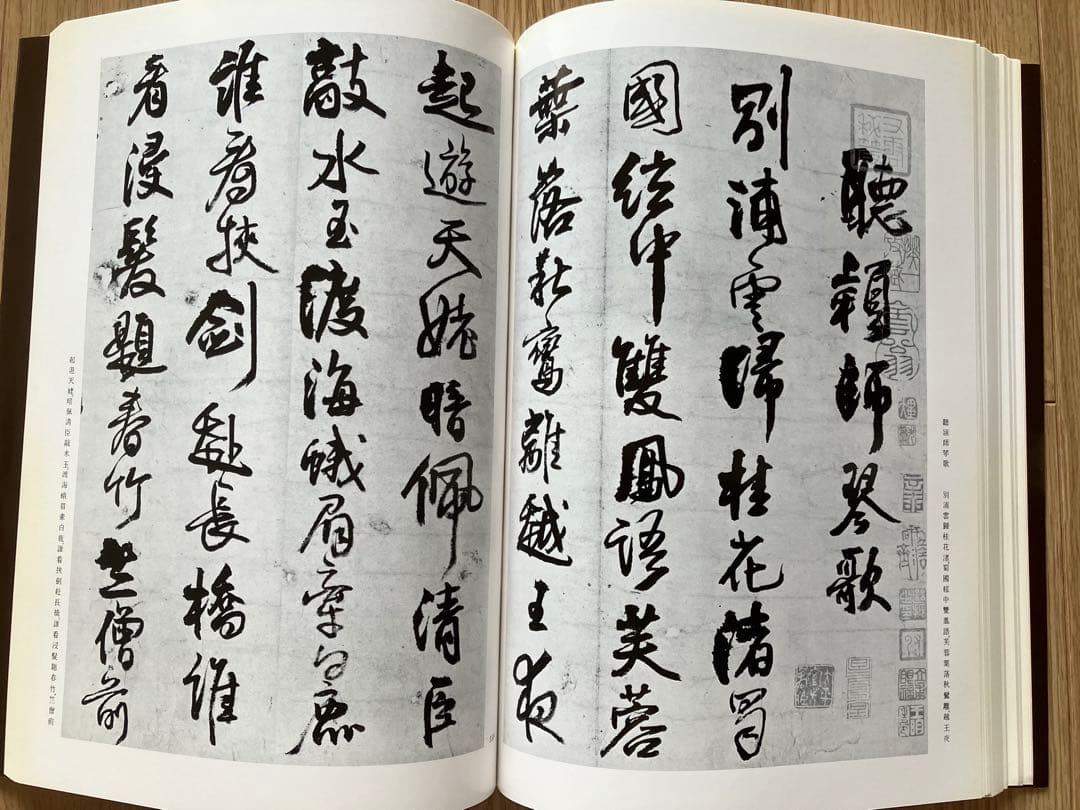 聽穎師琴歌　別浦雲歸桂花渚蜀國絃中雙鳳語芙蓉葉落秋鸞離越王夜
聽穎師琴歌
別浦雲歸桂花渚蜀
國絃中雙鳳語芙蓉
葉落秋鸞離越王夜
起遊天姥暗佩清臣
敲水玉渡海蛾眉牽白鹿
誰看挾劍赴長橋誰
看浸髮題春竹竺僧前
起遊天姥暗佩清臣敲水玉渡海蛾眉牽白鹿誰看挾劍赴長橋誰看浸髮題春竹竺僧前